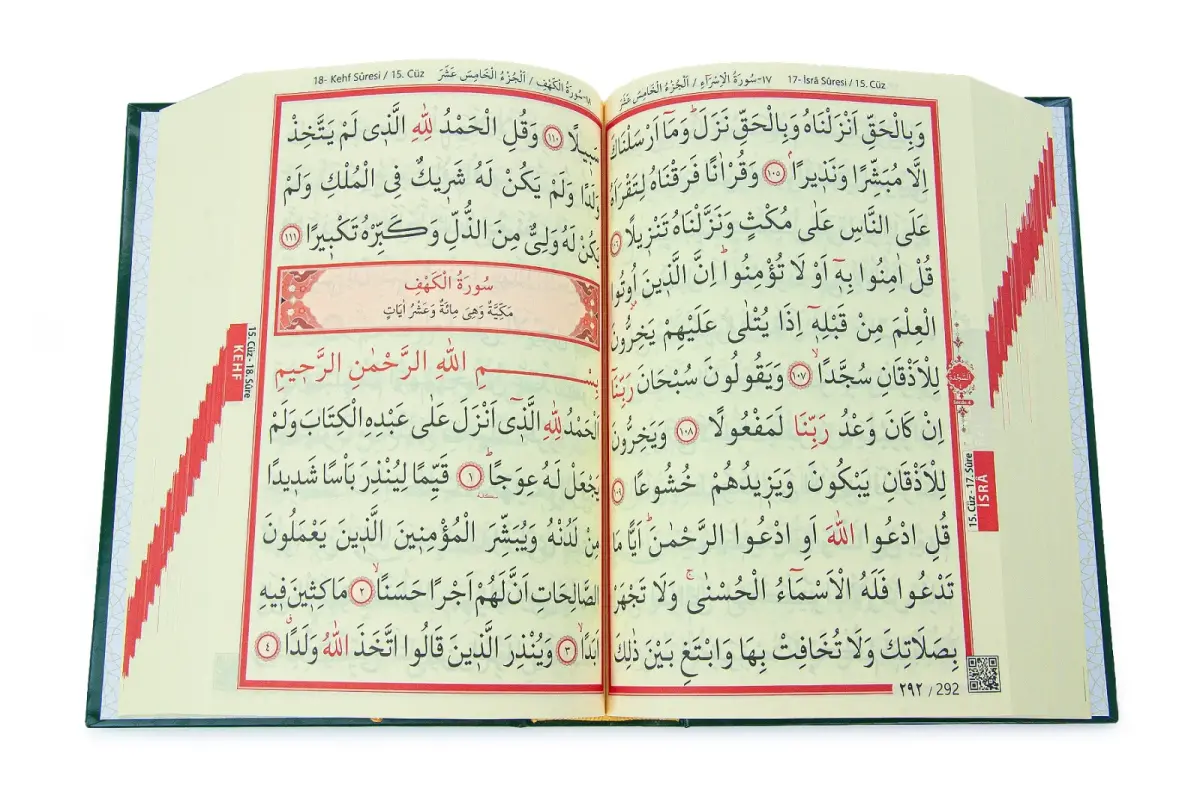 ١٧-سُورَةُ الْاِسْرَاءِ / اَلْجُزْءُ الْخَامِسَ عَشَرَ 17- İsrâ Sûresi / 15. Cüz
وَبِالْحَقِّ اَنْزَلْنَاهُ وَبِالْحَقِّ نَزَلَۜ وَمَٓا اَرْسَلْنَاكَ
اِلَّا مُبَشِّرًا وَنَذ۪يرًاۢ ﴿١٠٥﴾ وَقُرْاٰنًا فَرَقْنَاهُ لِتَقْرَاَهُ
عَلَى النَّاسِ عَلٰى مُكْثٍ وَنَزَّلْنَاهُ تَنْز۪يلًا ﴿١٠٦﴾
قُلْ اٰمِنُوا بِه۪ٓ اَوْ لَا تُؤْمِنُواۜ اِنَّ الَّذ۪ينَ اُو۫تُوا
الْعِلْمَ مِنْ قَبْلِه۪ٓ اِذَا يُتْلٰى عَلَيْهِمْ يَخِرُّونَ
لِلْاَذْقَانِ سُجَّدًاۙ ﴿١٠٧﴾ وَيَقُولُونَ سُبْحَانَ رَبِّنَٓا
اِنْ كَانَ وَعْدُ رَبِّنَا لَمَفْعُولًا ﴿١٠٨﴾ وَيَخِرُّونَ
لِلْاَذْقَانِ يَبْكُونَ وَيَز۪يدُهُمْ خُشُوعًا ﴿١٠٩﴾
قُلِ ادْعُوا اللّٰهَ اَوِ ادْعُوا الرَّحْمٰنَۜ اَيًّا مَا
تَدْعُوا فَلَهُ الْاَسْمَٓاءُ الْحُسْنٰىۚ وَلَا تَجْهَرْ
بِصَلَاتِكَ وَلَا تُخَافِتْ بِهَا وَابْتَغِ بَيْنَ ذٰلِكَ
٢٩٢ / 292
اَلسَّجْدَةُ
15. Cüz - 17. Sûre
İSRÂ
18- Kehf Sûresi / 15. Cüz ١٨-سُورَةُ الْكَهْفِ / اَلْجُزْءُ الْخَامِسَ عَشَرَ
سَب۪يلًا ﴿١١٠﴾ وَقُلِ الْحَمْدُ لِلّٰهِ الَّذ۪ي لَمْ يَتَّخِذْ
وَلَدًا وَلَمْ يَكُنْ لَهُ شَر۪يكٌ فِي الْمُلْكِ وَلَمْ
يَكُنْ لَهُ وَلِيٌّ مِنَ الذُّلِّ وَكَبِّرْهُ تَكْب۪يرًا ﴿١١١﴾
سُورَةُ الْكَهْفِ
مَكِّيَّةٌ وَهِيَ مِائَةٌ وَعَشْرُ اٰيَاتٍ
بِسْمِ اللّٰهِ الرَّحْمٰنِ الرَّح۪يمِ
اَلْحَمْدُ لِلّٰهِ الَّذ۪ٓي اَنْزَلَ عَلٰى عَبْدِهِ الْكِتَابَ وَلَمْ
يَجْعَلْ لَهُ عِوَجًاۜ ﴿١﴾ قَيِّمًا لِيُنْذِرَ بَاْسًا شَد۪يدًا
مِنْ لَدُنْهُ وَيُبَشِّرَ الْمُؤْمِن۪ينَ الَّذ۪ينَ يَعْمَلُونَ
الصَّالِحَاتِ اَنَّ لَهُمْ اَجْرًا حَسَنًاۙ ﴿٢﴾ مَاكِث۪ينَ ف۪يهِ
اَبَدًاۙ ﴿٣﴾ وَيُنْذِرَ الَّذ۪ينَ قَالُوا اتَّخَذَ اللّٰهُ وَلَدًاۗ ﴿٤﴾
15. Cüz - 18. Sûre
KEHF